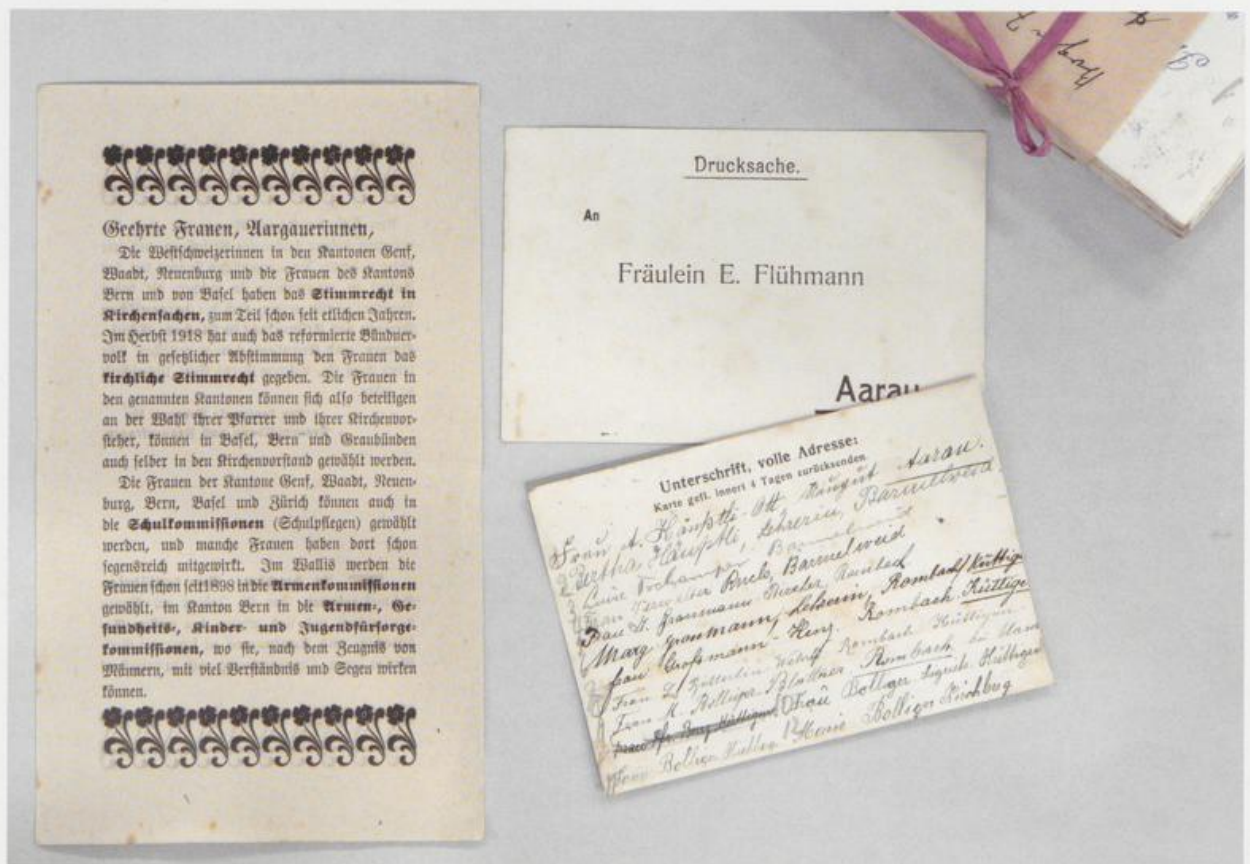 Geehrte Frauen, Aargauerinnen,
Die Westschweizerinnen in den Kantonen Genf,
Waadt, Neuenburg und die Frauen des Kantons
Bern und von Basel haben das Stimmrecht in
Kirchensachen, zum Teil schon seit etlichen Jahren.
Im Herbst 1918 hat auch das reformierte Bündner-
volk in gesetzlicher Abstimmung den Frauen das
kirchliche Stimmrecht gegeben. Die Frauen in
den genannten Kantonen können sich also beteiligen
an der Wahl ihrer Pfarrer und ihrer Kirchenvor-
steher, können in Basel, Bern und Graubünden
auch selber in den Kirchenvorstand gewählt werden.
Die Frauen der Kantone Genf, Waadt, Neuen-
burg, Bern, Basel und Zürich können auch in
die Schulkommissionen (Schulpflegen) gewählt
werden, und manche Frauen haben dort schon
segensreich mitgewirkt. Im Wallis werden die
Frauen schon seit 1898 in die Armenkommissionen
gewählt, im Kanton Bern in die Armen-, Ge-
sundheits-, Kinder- und Jugendfürsorge-
kommissionen, wo sie, nach dem Zeugnis von
Männern, mit viel Verständnis und Segen wirken
können.
Drucksache.
An
Fräulein E. Flühmann
Aarau
Unterschrift, volle Adresse:
Karte gefl. innert 4 Tagen zurücksenden
Frau A. Häuptli-Ott, Aarau.
Bertha Häuptli, Lehrerin, Barmelweid
Luise Barmelweid
Frau Verwalter Barmelweid
Frau
Marg. Lehrerin, Rombach/Küttigen
Frau Grossmann Rombach Küttigen
Frau L. Rombach Küttigen
Frau M. Bolliger-Blattner, Rombach bei Aarau
Frau Bolliger Küttigen
Frau Bolliger Marie Bolliger Kirchberg